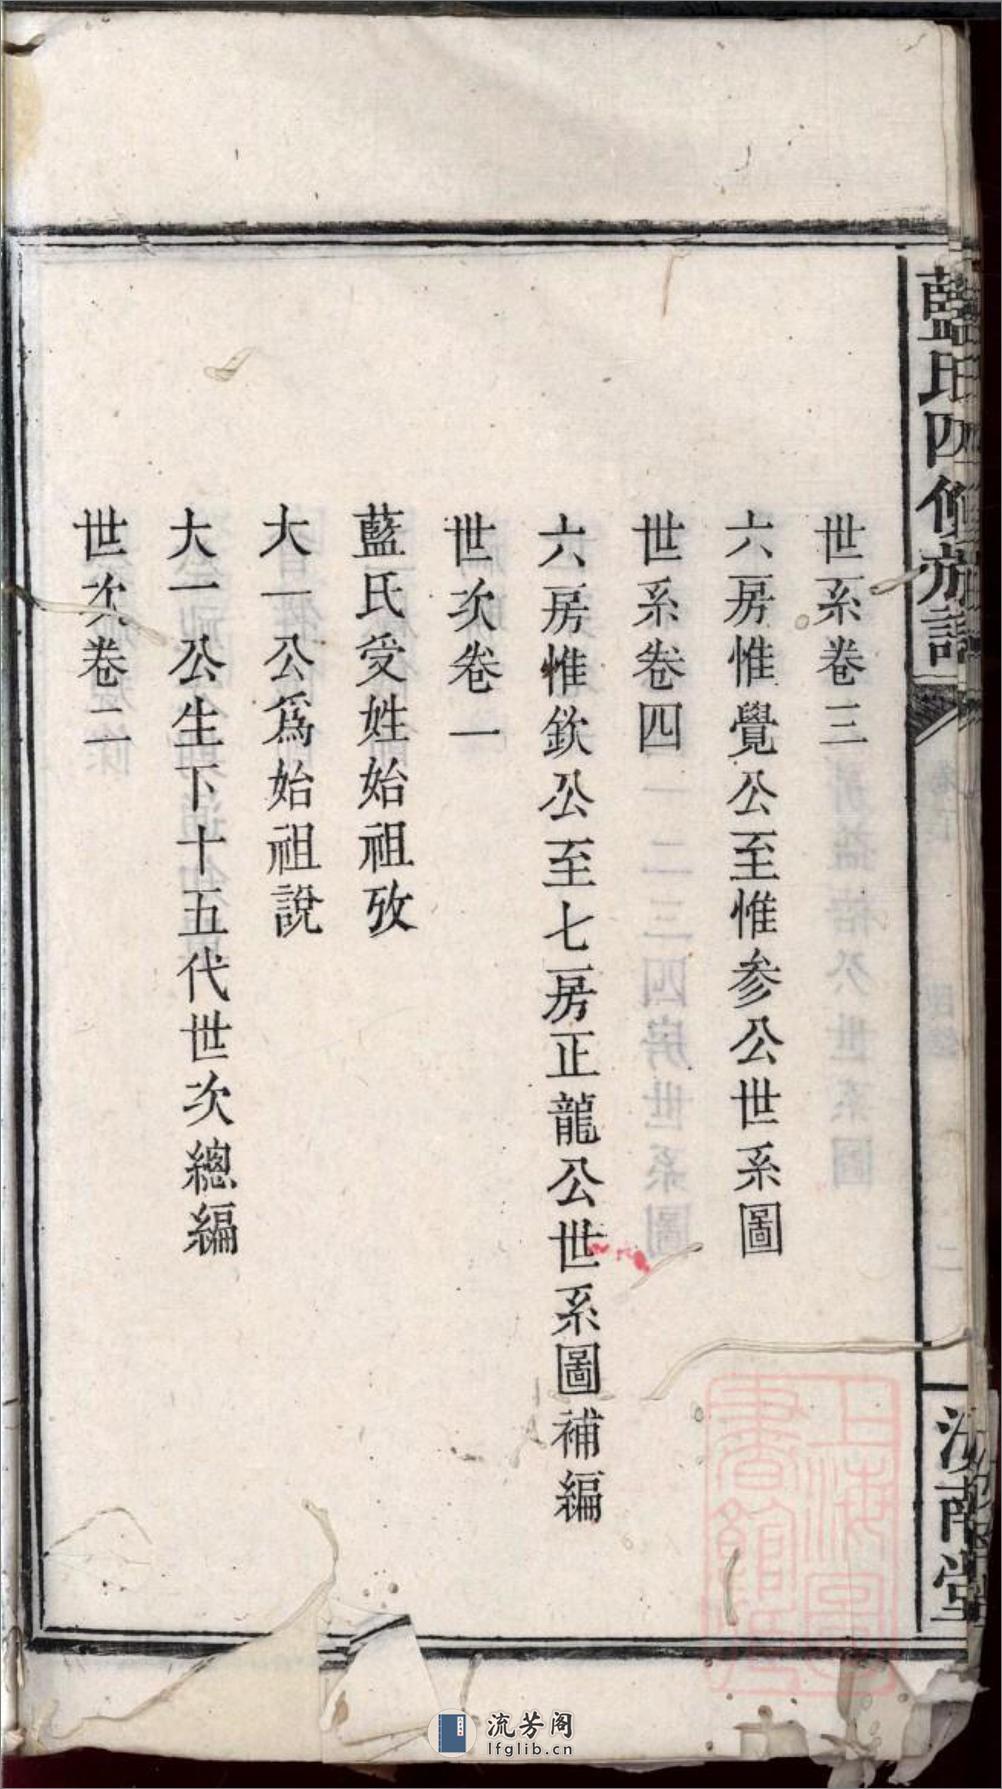 藍氏四修族譜
汝南堂
世系卷三
六房惟覺公至惟參公世系圖
世系卷四
六房惟欽公至七房正龍公世系圖補編
世次卷一
藍氏受姓始祖攷
大一公爲始祖說
大一公生下十五代世次總編
世次卷二
上海圖書館藏
流芳阁
lfglib.cn